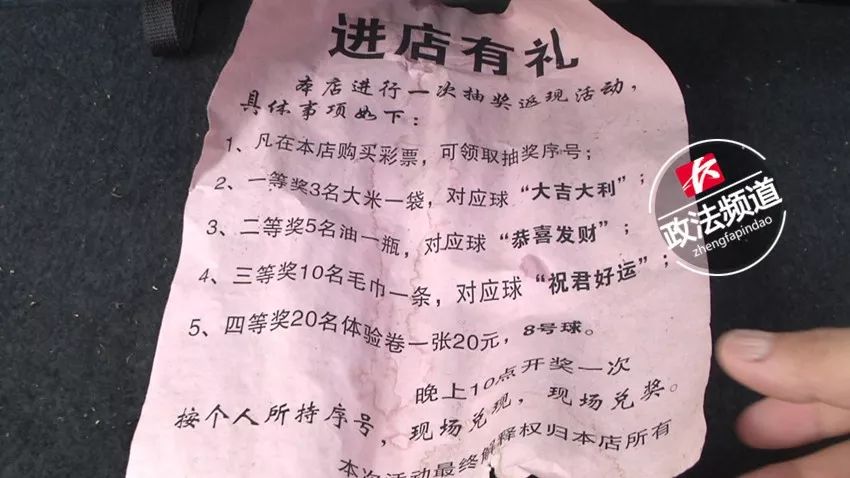 进店有礼
本店进行一次抽奖返现活动，
具体事项如下：
1、凡在本店购买彩票，可领取抽奖序号；
2、一等奖3名大米一袋，对应球“大吉大利”；
3、二等奖5名油一瓶，对应球“恭喜发财”；
4、三等奖10名毛巾一条，对应球“祝君好运”；
5、四等奖20名体验卷一张20元，8号球。
晚上10点开奖一次
按个人所持序号，现场兑现，现场兑奖。
本次活动最终解释权归本店所有
政法频道
zhengfapindao